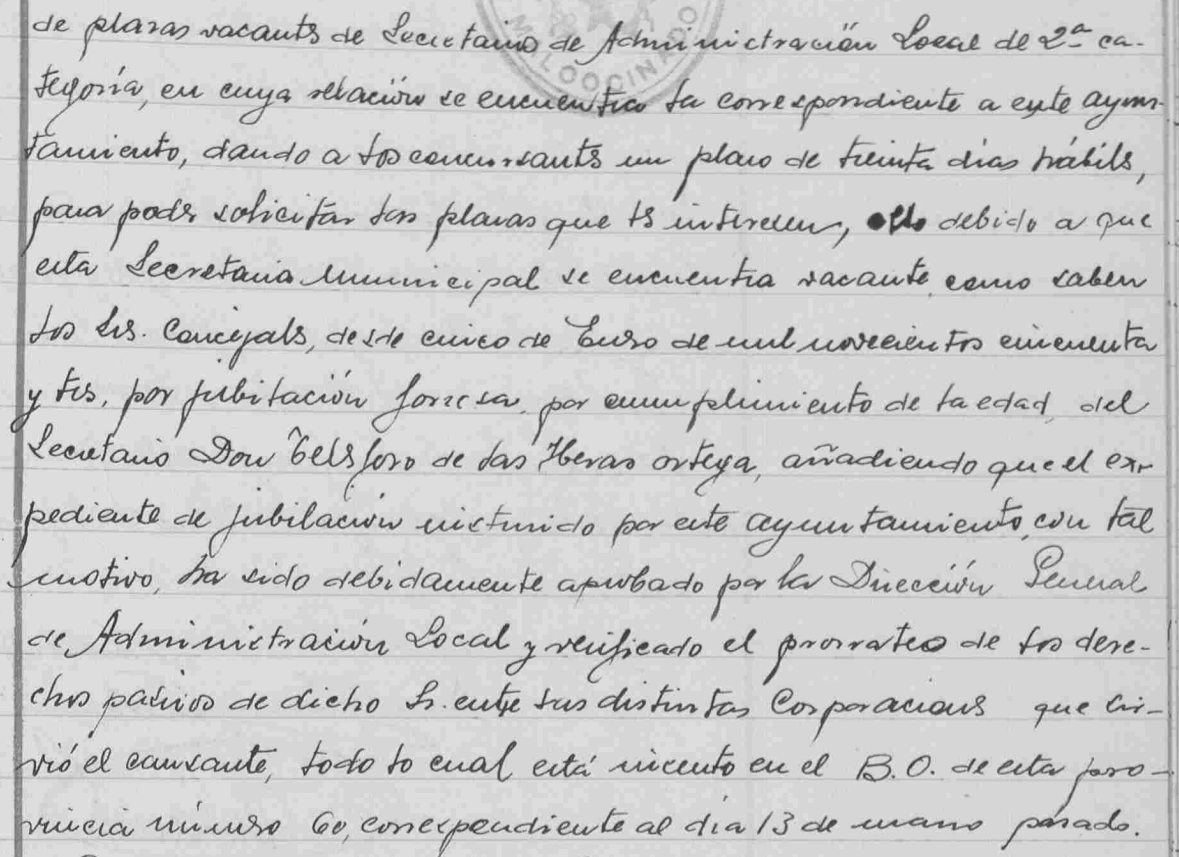 MALCOCINADO
de plazas vacantes de Secretarios de Administración Local de 2ª ca-
tegoría, en cuya relación se encuentra la correspondiente a este ayun-
tamiento, dando a los concursantes un plazo de treinta dias hábiles,
para poder solicitar las plazas que les interesen, ello debido a que
esta Secretaria Municipal se encuentra vacante, como saben
los Srs. Concejales, desde cinco de Enero de mil novecientos cincuenta
y tres, por jubilación forzosa, por cumplimiento de la edad, del
Secretario Don Telesforo de las Heras Ortega, añadiendo que el ex-
pediente de jubilación instruido por este ayuntamiento, con tal
motivo, ha sido debidamente aprobado por la Dirección General
de Administración Local y verificado el prorrateo de los dere-
chos pasivos de dicho Sr. entre las distintas Corporaciones que sir-
vió el causante, todo lo cual está inserto en el B.O. de esta pro-
vincia número 60, correspondiente al día 13 de marzo pasado.